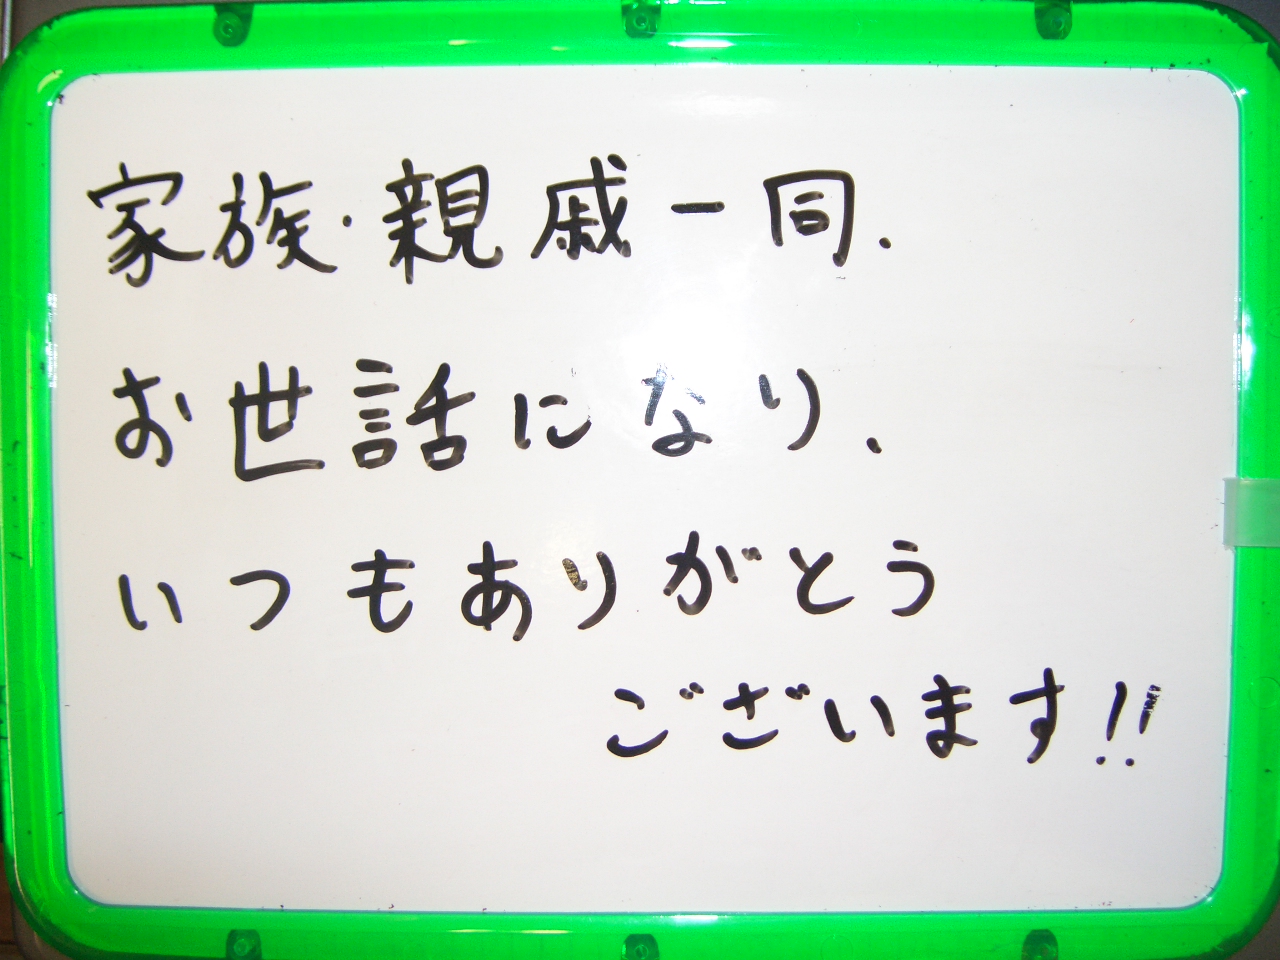 家族・親戚一同.
お世話になり.
いつもありがとう
ございます!!